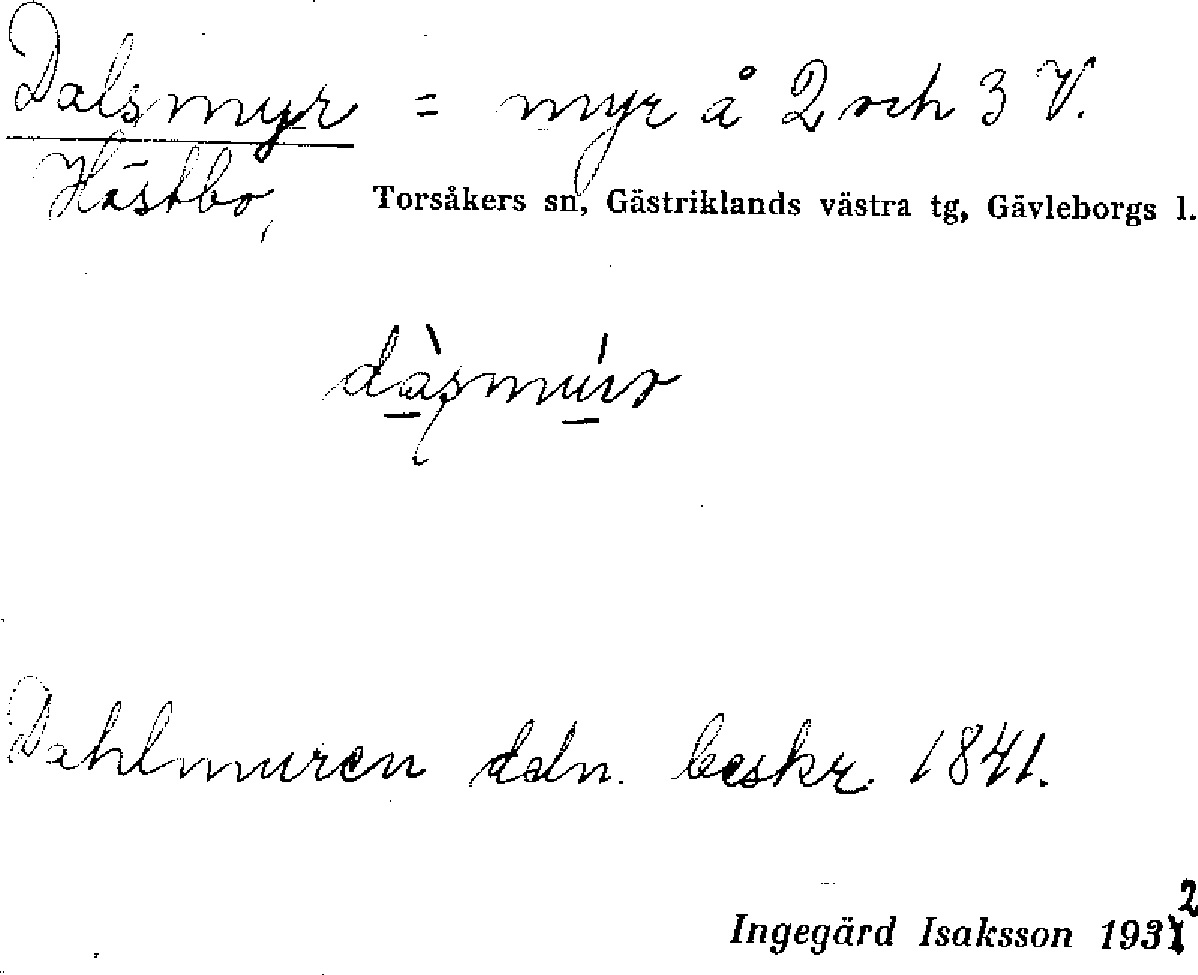 Dalsmyr = myr å 2 och 3 V.
Hästbo, Torsåkers sn, Gästriklands västra tg, Gävleborgs l.
dàsmúr
Dahlmuren ddn. beskr. 1841.
Ingegärd Isaksson 1932